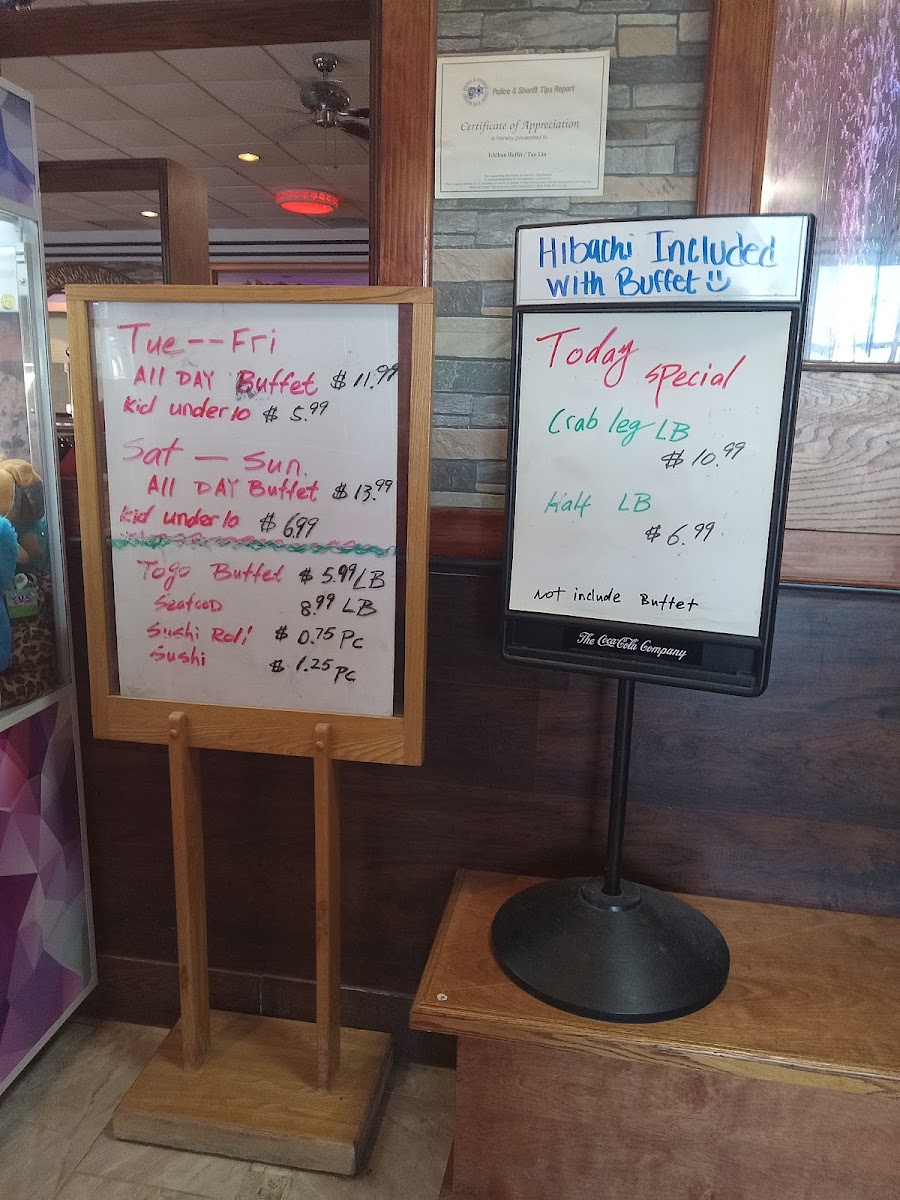 Police & Sheriff Tips Report
Certificate of Appreciation
is hereby presented to
Ichiban Buffet / Tan Lin
Hibachi Included
With Buffet
Tue -- Fri
All DAY Buffet $ 11.99
Kid under 10 $ 5.99
Sat — Sun.
All DAY Buffet $ 13.99
Kid under 10 $ 6.99
Togo Buffet $ 5.99 LB
Seafood 8.99 LB
Sushi Roll $ 0.75 Pc
Sushi $ 1.25 Pc
Today
special
Crab leg LB
$ 10.99
Half LB
$ 6.99
Not include Buffet
The Coca-Cola Company